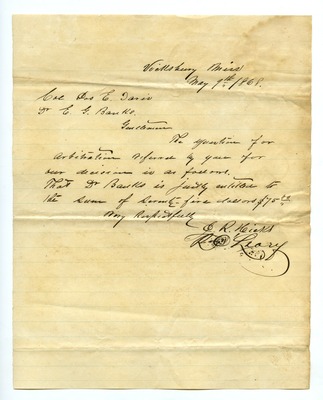 Vicksburg Miss
May 9th /868.
Col Jos E. Davis
Dr E. G. Banks.
Gentlemen
The question for
arbitration referred by you for
our decision is as follows.
That Dr Banks is justly entitled to
the sum of Seventy five dollars $75
Very Respectfully
E. R. Hicks
Leary